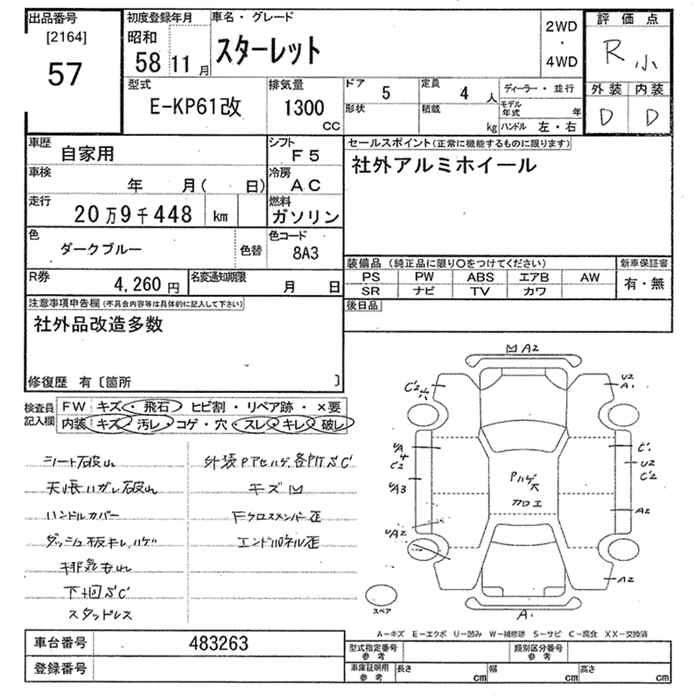 出品番号
[2164]
57
初度登録年月
昭和
58 11月
車名・グレード
スターレット
2WD
・
4WD
評価点
R小
外装 内装
D D
型式
E-KP61改
排気量
1300
CC
ドア 5
定員 4 人
形状
積載 kg
ディーラー・並行
モデル年式 年
ハンドル 左・右
車歴
自家用
シフト
F5
車検
年 月( 日)
冷房
AC
走行
20万9千448 km
燃料
ガソリン
色
ダークブルー
色替
色コード
8A3
R券
4,260円
名変通知期限
月 日
セールスポイント(正常に機能するものに限ります)
社外アルミホイール
装備品(純正品に限り○をつけてください)
新車保証書
PS PW ABS エアB AW
SR ナビ TV カワ
有・無
後日品
注意事項申告欄(不具合内容等は具体的に記入して下さい)
社外品改造多数
修復歴 有〔箇所 〕
検査員記入欄
FW キズ・飛石 ヒビ割・リペア跡・×要
内装 キズ・汚レ・コゲ・穴・スレ・キレ・破レ
シート破れ
天張ハガレ破れ
ハンドルカバー
ダッシュ板キレ、ハゲ
排気もれ
下回S'C'
スタッドレス
外装Pアセハゲ、各所S'C'
キズ凹
Fクロスメンバー歪
エンドパネル歪
凹 A2
C'2 穴
U2
A1
UA4
C'2
UA3
UA2
Pハゲ大
カロエ
C'1
U2
C'2
A2
A2
A1
スペア
A-キズ E-エクボ U-凹み W-補修跡 S-サビ C-腐食 XX-交換済
車台番号 483263
登録番号
型式指定番号参考
類別区分番号参考
車庫証明用参考
長さ cm
幅 cm
高さ cm